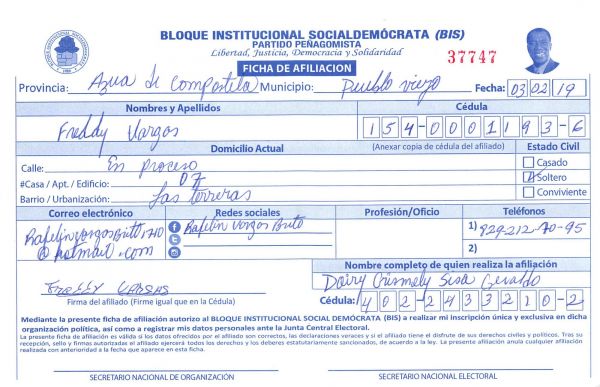 BLOQUE INSTITUCIONAL SOCIALDEMÓCRATA (BIS)
PARTIDO PEÑAGOMISTA
Libertad, Justicia, Democracia y Solidaridad
37747
FICHA DE AFILIACION
Provincia: Azua de Compostela Municipio: Pueblo viejo Fecha: 03 02 19
Nombres y Apellidos Cédula
Freddy Vargas 154-0001193-6
Domicilio Actual (Anexar copia de cédula del afiliado) Estado Civil
Calle: En proceso Casado
#Casa / Apt. / Edificio: 07 Soltero
Barrio / Urbanización: Las terreras Conviviente
Correo electrónico Redes sociales Profesión/Oficio Teléfonos
Rafelinvargasbritt1710 Rafelin Vargas Brito 1) 829-212-70-95
@hotmail.com 2)
Nombre completo de quien realiza la afiliación
FREDDY VARGAS Dairy Crismely Sisa Geraldo
Firma del afiliado (Firme igual que en la Cédula) Cédula: 402-2433210-2
Mediante la presente ficha de afiliación autorizo al BLOQUE INSTITUCIONAL SOCIAL DEMÓCRATA (BIS) a realizar mi inscripción única y exclusiva en dicha
organización política, así como a registrar mis datos personales ante la Junta Central Electoral.
La presente ficha de afiliación es válida si los datos ofrecidos por el afiliado son correctos, las declaraciones veraces y si el afiliado tiene el disfrute de sus derechos civiles y políticos. Tras su
recepción, sello y firmas autorizadas el afiliado ejercerá todos los derechos y deberes estatutariamente sancionados, de acuerdo a la ley. La presente afiliación anula cualquier afiliación
realizada con anterioridad a la fecha que aparece en esta ficha.
SECRETARIO NACIONAL DE ORGANIZACIÓN SECRETARIO NACIONAL ELECTORAL